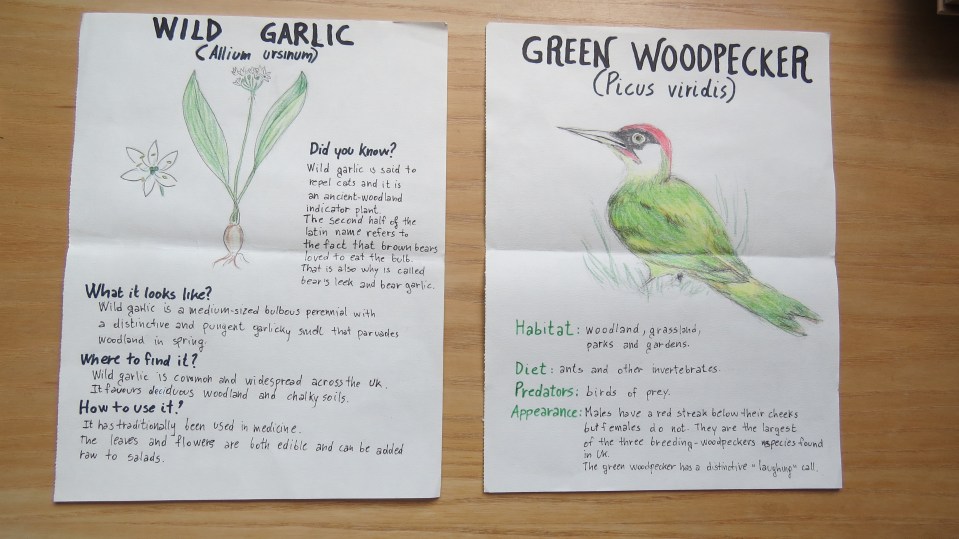 WILD GARLIC
(Allium ursinum)
Did you know?
Wild garlic is said to
repel cats and it is
an ancient-woodland
indicator plant.
The second half of the
latin name refers to
the fact that brown bears
loved to eat the bulb.
That is also why is called
bear's leek and bear garlic.
What it looks like?
Wild garlic is a medium-sized bulbous perennial with
a distinctive and pungent garlicky smell that parvades
woodland in spring.
Where to find it?
Wild garlic is common and widespread across the UK.
It favours deciduous woodland and chalky soils.
How to use it?
It has traditionally been used in medicine.
The leaves and flowers are both edible and can be added
raw to salads.
GREEN WOODPECKER
(Picus viridis)
Habitat: woodland, grassland,
parks and gardens.
Diet: ants and other invertebrates.
Predators: birds of prey.
Appearance: Males have a red streak below their cheeks
but females do not. They are the largest
of the three breeding-woodpeckers species found
in UK.
The green woodpecker has a distinctive "laughing" call.